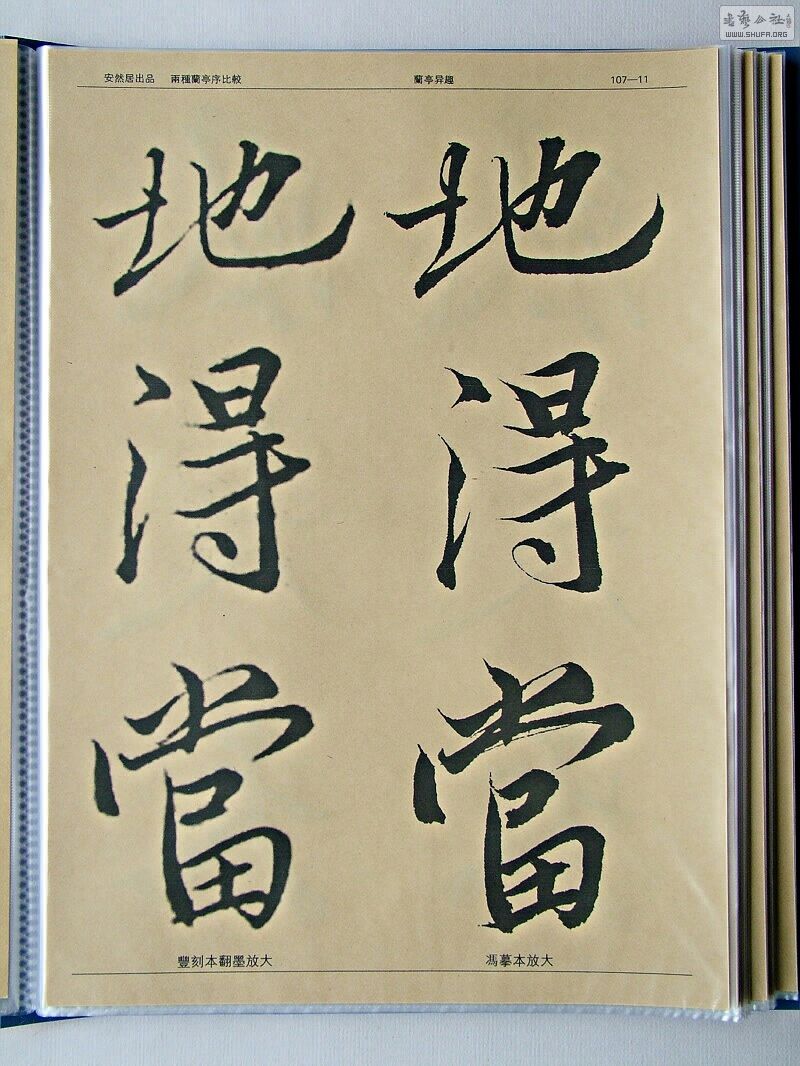 書藝公社
WWW.SHUFA.ORG
安然居出品 兩種蘭亭序比較 蘭亭异趣 107—11
地 地
得 得
當 當
豐刻本翻墨放大 馮摹本放大